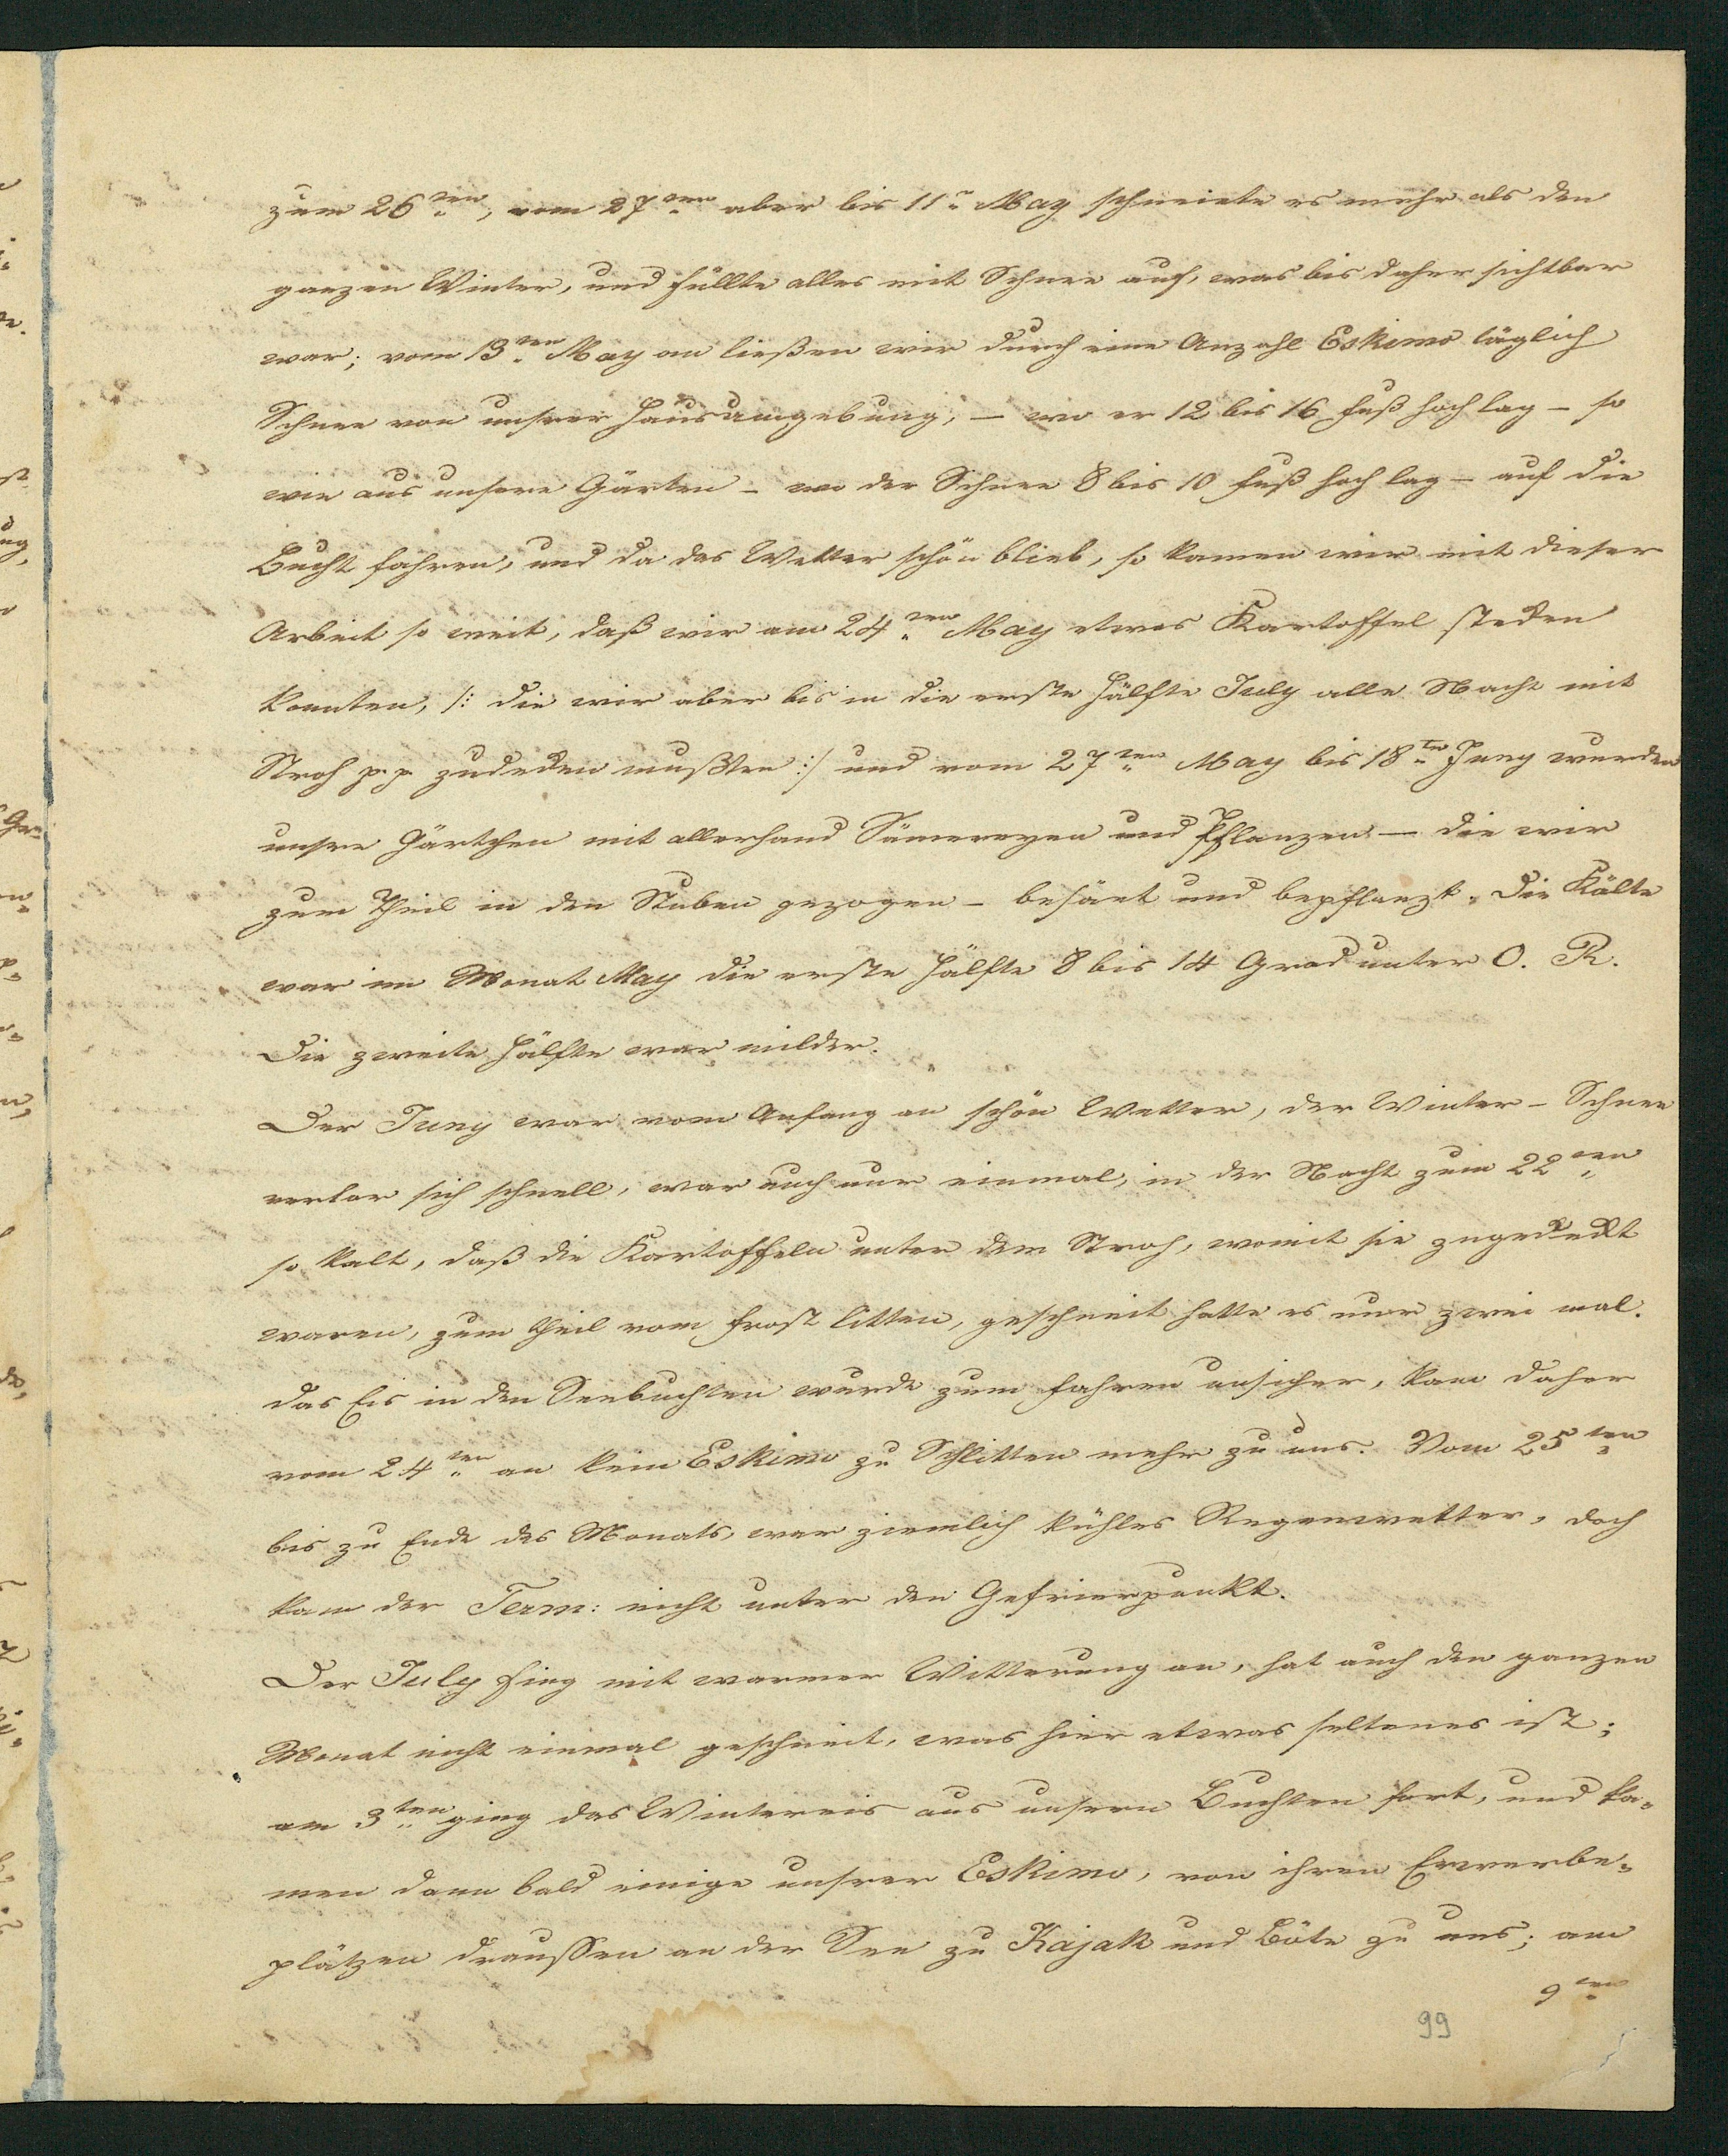 zum 26ten, vom 27ten aber bis 11n May schneiete es mehr als den
ganzen Winter, und füllte alles mit Schnee auf, was bis daher sichtbar
war; vom 13ten May an ließen wir durch eine Anzahl Eskimo täglich
Schnee von unsrer Hausumgebung, — wo er 12 bis 16 Fuß hoch lag — so
wie aus unsern Gärten — wo der Schnee 8 bis 10 Fuß hoch lag — auf die
Bucht fahren, und da das Wetter schön blieb, so kamen wir mit dieser
Arbeit so weit, daß wir am 24ten May etwas Kartoffel stecken
konnten, /: die wir aber bis in die erste Hälfte July alle Nacht mit
Stroh p.p. zudecken mußten :/ und vom 27ten May bis 18ten Juny wurden
unsre Gärtchen mit allerhand Sämereyen und Pflanzen — die wir
zum Theil in den Stuben gezogen — besäet und bepflanzt. Die Kälte
war im Monat May die erste Hälfte 8 bis 14 Grad unter 0. R.
Die zweite Hälfte war milder.
Der Juny war vom Anfang an schön Wetter, der Winter-Schnee
verlor sich schnell, war auch nur einmal, in der Nacht zum 22ten
so kalt, daß die Kartoffeln unter dem Stroh, womit sie zugedeckt
waren, zum Theil vom Frost litten, geschneit hatte es nur zwei mal.
das Eis in den Seebuchten wurde zum fahren unsicher, kam daher
vom 24ten an kein Eskimo zu Schlitten mehr zu uns. Vom 25ten
bis zu Ende des Monats, war ziemlich kühles Regenwetter, doch
kam der Term: nicht unter den Gefrierpunkt.
Der July fing mit warmer Witterung an, hat auch den ganzen
Monat nicht einmal geschneit, was hier etwas seltenes ist;
am 3ten ging das Wintereis aus unsern Buchten fort, und ka=
men dann bald einige unsrer Eskimo, von ihren Erwerbe=
plätzen draussen an der See zu Kajak und Böte zu uns; am
9ten
99